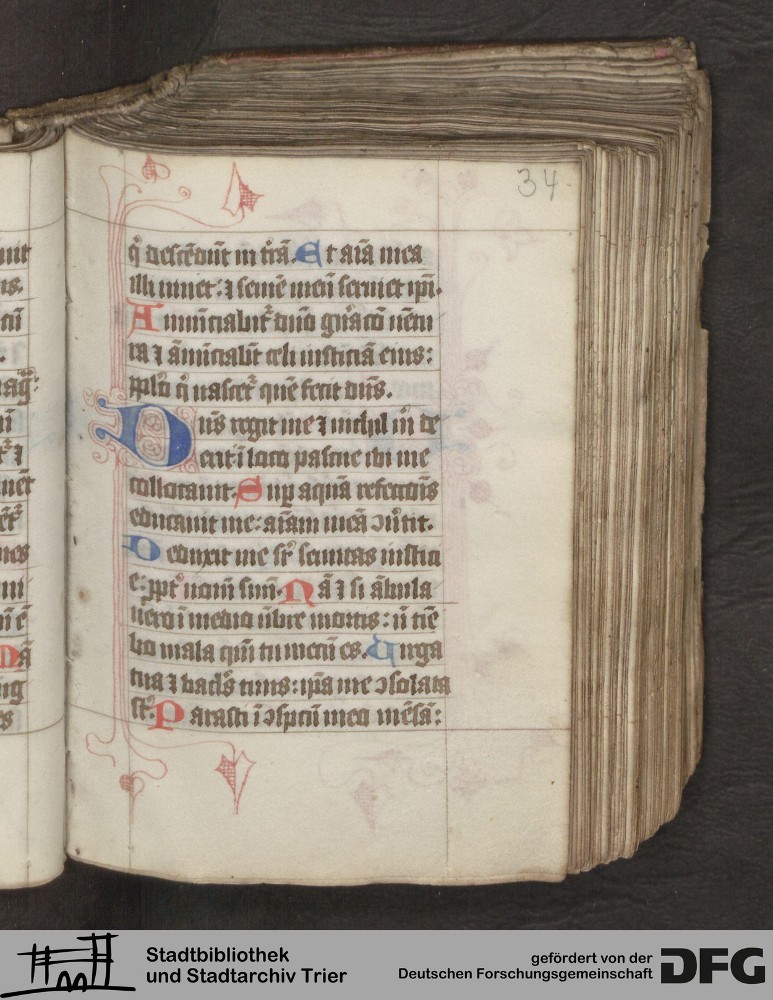 34
q̄ descēdūt in t̄rā. Et aīa mea
illi viuet: ⁊ semē meū seruiet ip̄i.
Annūciabit̄ dn̄o gn̄acō ventu
ra ⁊ ān̄ūciabūt celi iusticiā eius:
pp̄lo q̄ nascet̄ quē fecit dn̄s.
Dn̄s regit me ⁊ nichil m̄ de
erit: ī loco pascue ibi me
collocauit. Sup aquā refectōis
educauit me: aīam meā ɔuertit.
Deduxit me sr̄ semitas iusticī
e: ꝓpt̄ nomē suū. Nā ⁊ si ābula
uero ī medio vmbre mortis: nō tīe
bo mala qm̄ tu mecū es. Virga
tua ⁊ baclꝰs tuus: ip̄a me ɔsolata
st̄. Parasti ī ɔspcū meo mēsā:
Stadtbibliothek
und Stadtarchiv Trier
gefördert von der
Deutschen Forschungsgemeinschaft
DFG